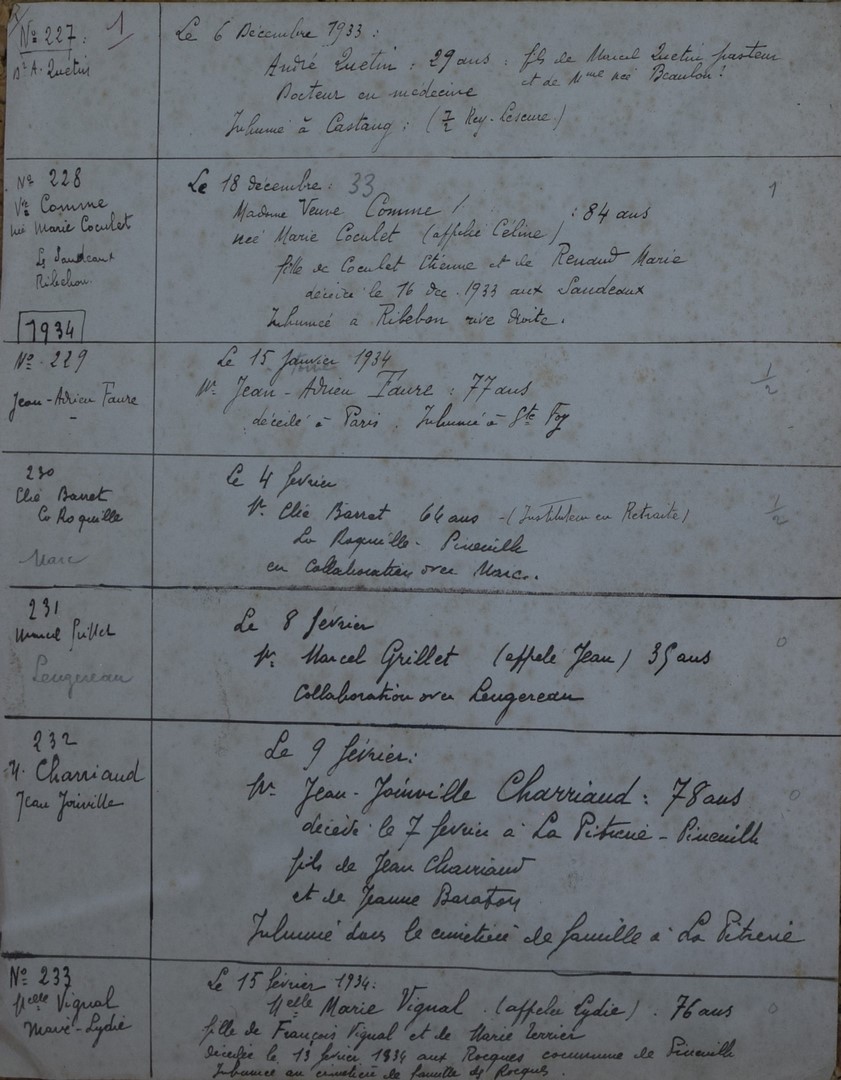 Nº 227: 1
Dr A. Quetin
Le 6 Décembre 1933:
André Quetin: 29 ans: fils de Marcel Quetin pasteur
Docteur en médecine et de Mme née Beaulon?
Inhumé à Castang: (7/2 Rey-Lescure)
Nº 228
Vve Comme
née Marie Coculet
Ribebon
Le 18 décembre: 33 1
Madame Veuve Comme / : 84 ans
née Marie Coculet (appelée Céline)
fille de Coculet Etienne et de Renaud Marie
décédée le 16 dec. 1933 aux Sandeaux
Inhumée à Ribebon rive droite.
1934
Nº 229
Jean-Adrien Faure
Le 15 janvier 1934
Mr. Jean-Adrien Faure: 77 ans 1/2
décédé à Paris. Inhumé à Ste Foy
230
Elié Barret
La Roquille
Marc
Le 4 fevrier
Mr. Elié Barret 64 ans - (Instituteur en Retraite) 1/2
La Roquille - Pineuilh
en collaboration avec Marc.
231
Marcel Grillet
Lengereau
Le 8 fevrier 0
Mr. Marcel Grillet (appelé Jean) 35 ans
Collaboration avec Lengereau
232
M. Charriaud
Jean Joinville
Le 9 février:
Mr. Jean-Joinville Charriaud: 78 ans 0
décédé le 7 fevrier à La Pitrerie - Pineuilh
fils de Jean Charriaud
et de Jeanne Baraton
Inhumé dans le cimetière de famille à La Pitrerie
Nº 233
Melle Vignal
Marie-Lydie
Le 15 février 1934:
Melle Marie Vignal. (appelée Lydie). 76 ans 0
fille de François Vignal et de Marie Terrier
décédée le 13 fevrier 1934 aux Rocques commune de Pineuilh
Inhumée au cimetière de famille des Rocques.